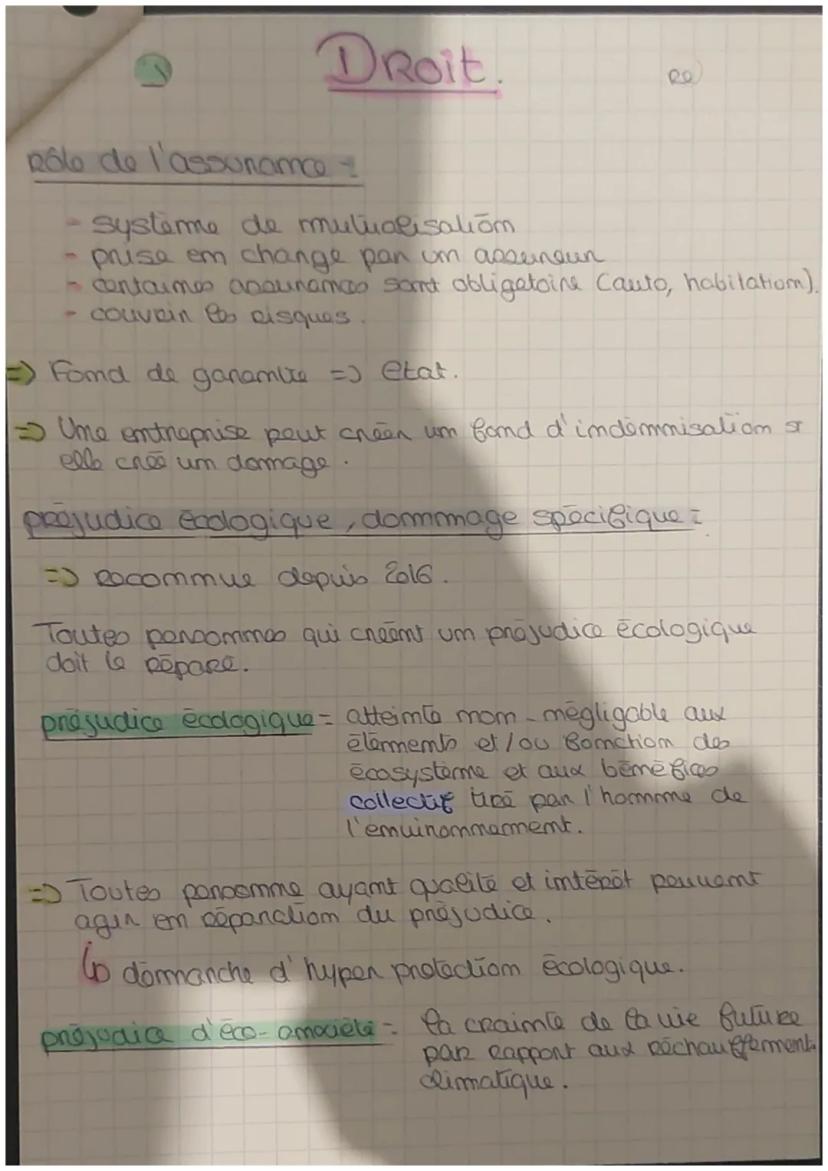 1
Droit.
Rôle de l'assurance :
- système de mutualisation
- prise en charge par un assureur
- certaines assurances sont obligatoire (auto, habitation).
- couvrir les risques.
=> Fond de garantie => etat.
=> Une entreprise peut créer un fond d'indémnisation si
elle créé un domage.
préjudice écologique, dommage spécifique :
=> Reconnue depuis 2016.
Toutes personnes qui créent un préjudice écologique
doit le réparé.
préjudice écologique = atteinte non-négligable aux
éléments et/ou fonction des
écosystème et aux bénéfices
collectif tiré par l'homme de
l'environnement.
=> Toutes personne ayant qualité et intérêt peuvent
agir en réparation du préjudice.
↳ démarche d'hyper protection écologique.
préjudice d'éco-anxiété = la crainte de la vie future
par rapport aux réchauffement
climatique.